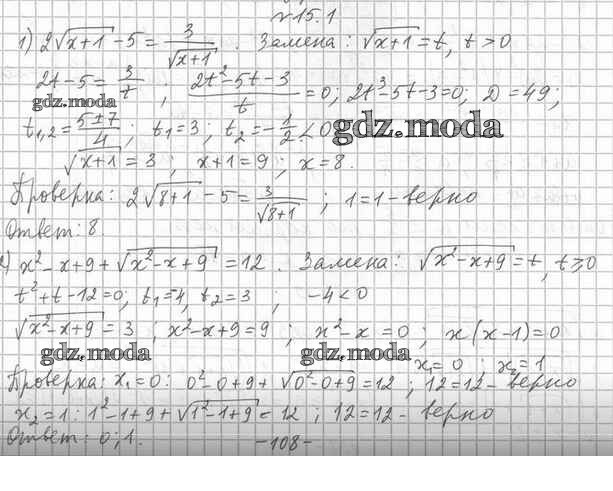 №15.1
1) 2√(x+1) - 5 = 3/√(x+1). Замена: √(x+1) = t, t > 0
2t - 5 = 3/t ; (2t² - 5t - 3)/t = 0; 2t³ - 5t - 3 = 0; D = 49;
gdz.moda
t₁,₂ = (5±7)/4 ; t₁ = 3 ; t₂ = -1/2 < 0
gdz.moda
√(x+1) = 3 ; x+1 = 9 ; x = 8.
Проверка: 2√(8+1) - 5 = 3/√(8+1) ; 1 = 1 - верно
Ответ: 8.
2) x² - x + 9 + √(x² - x + 9) = 12. Замена: √(x² - x + 9) = t, t ≥ 0
t² + t - 12 = 0; t₁ = -4, t₂ = 3 ; -4 < 0
√(x² - x + 9) = 3 ; x² - x + 9 = 9 ; x² - x = 0 ; x(x-1) = 0
gdz.moda gdz.moda
x₁ = 0 ; x₂ = 1
Проверка: x₁ = 0: 0² - 0 + 9 + √(0² - 0 + 9) = 12 ; 12 = 12 - верно
x₂ = 1: 1² - 1 + 9 + √(1² - 1 + 9) = 12 ; 12 = 12 - верно
Ответ: 0; 1.
-108-